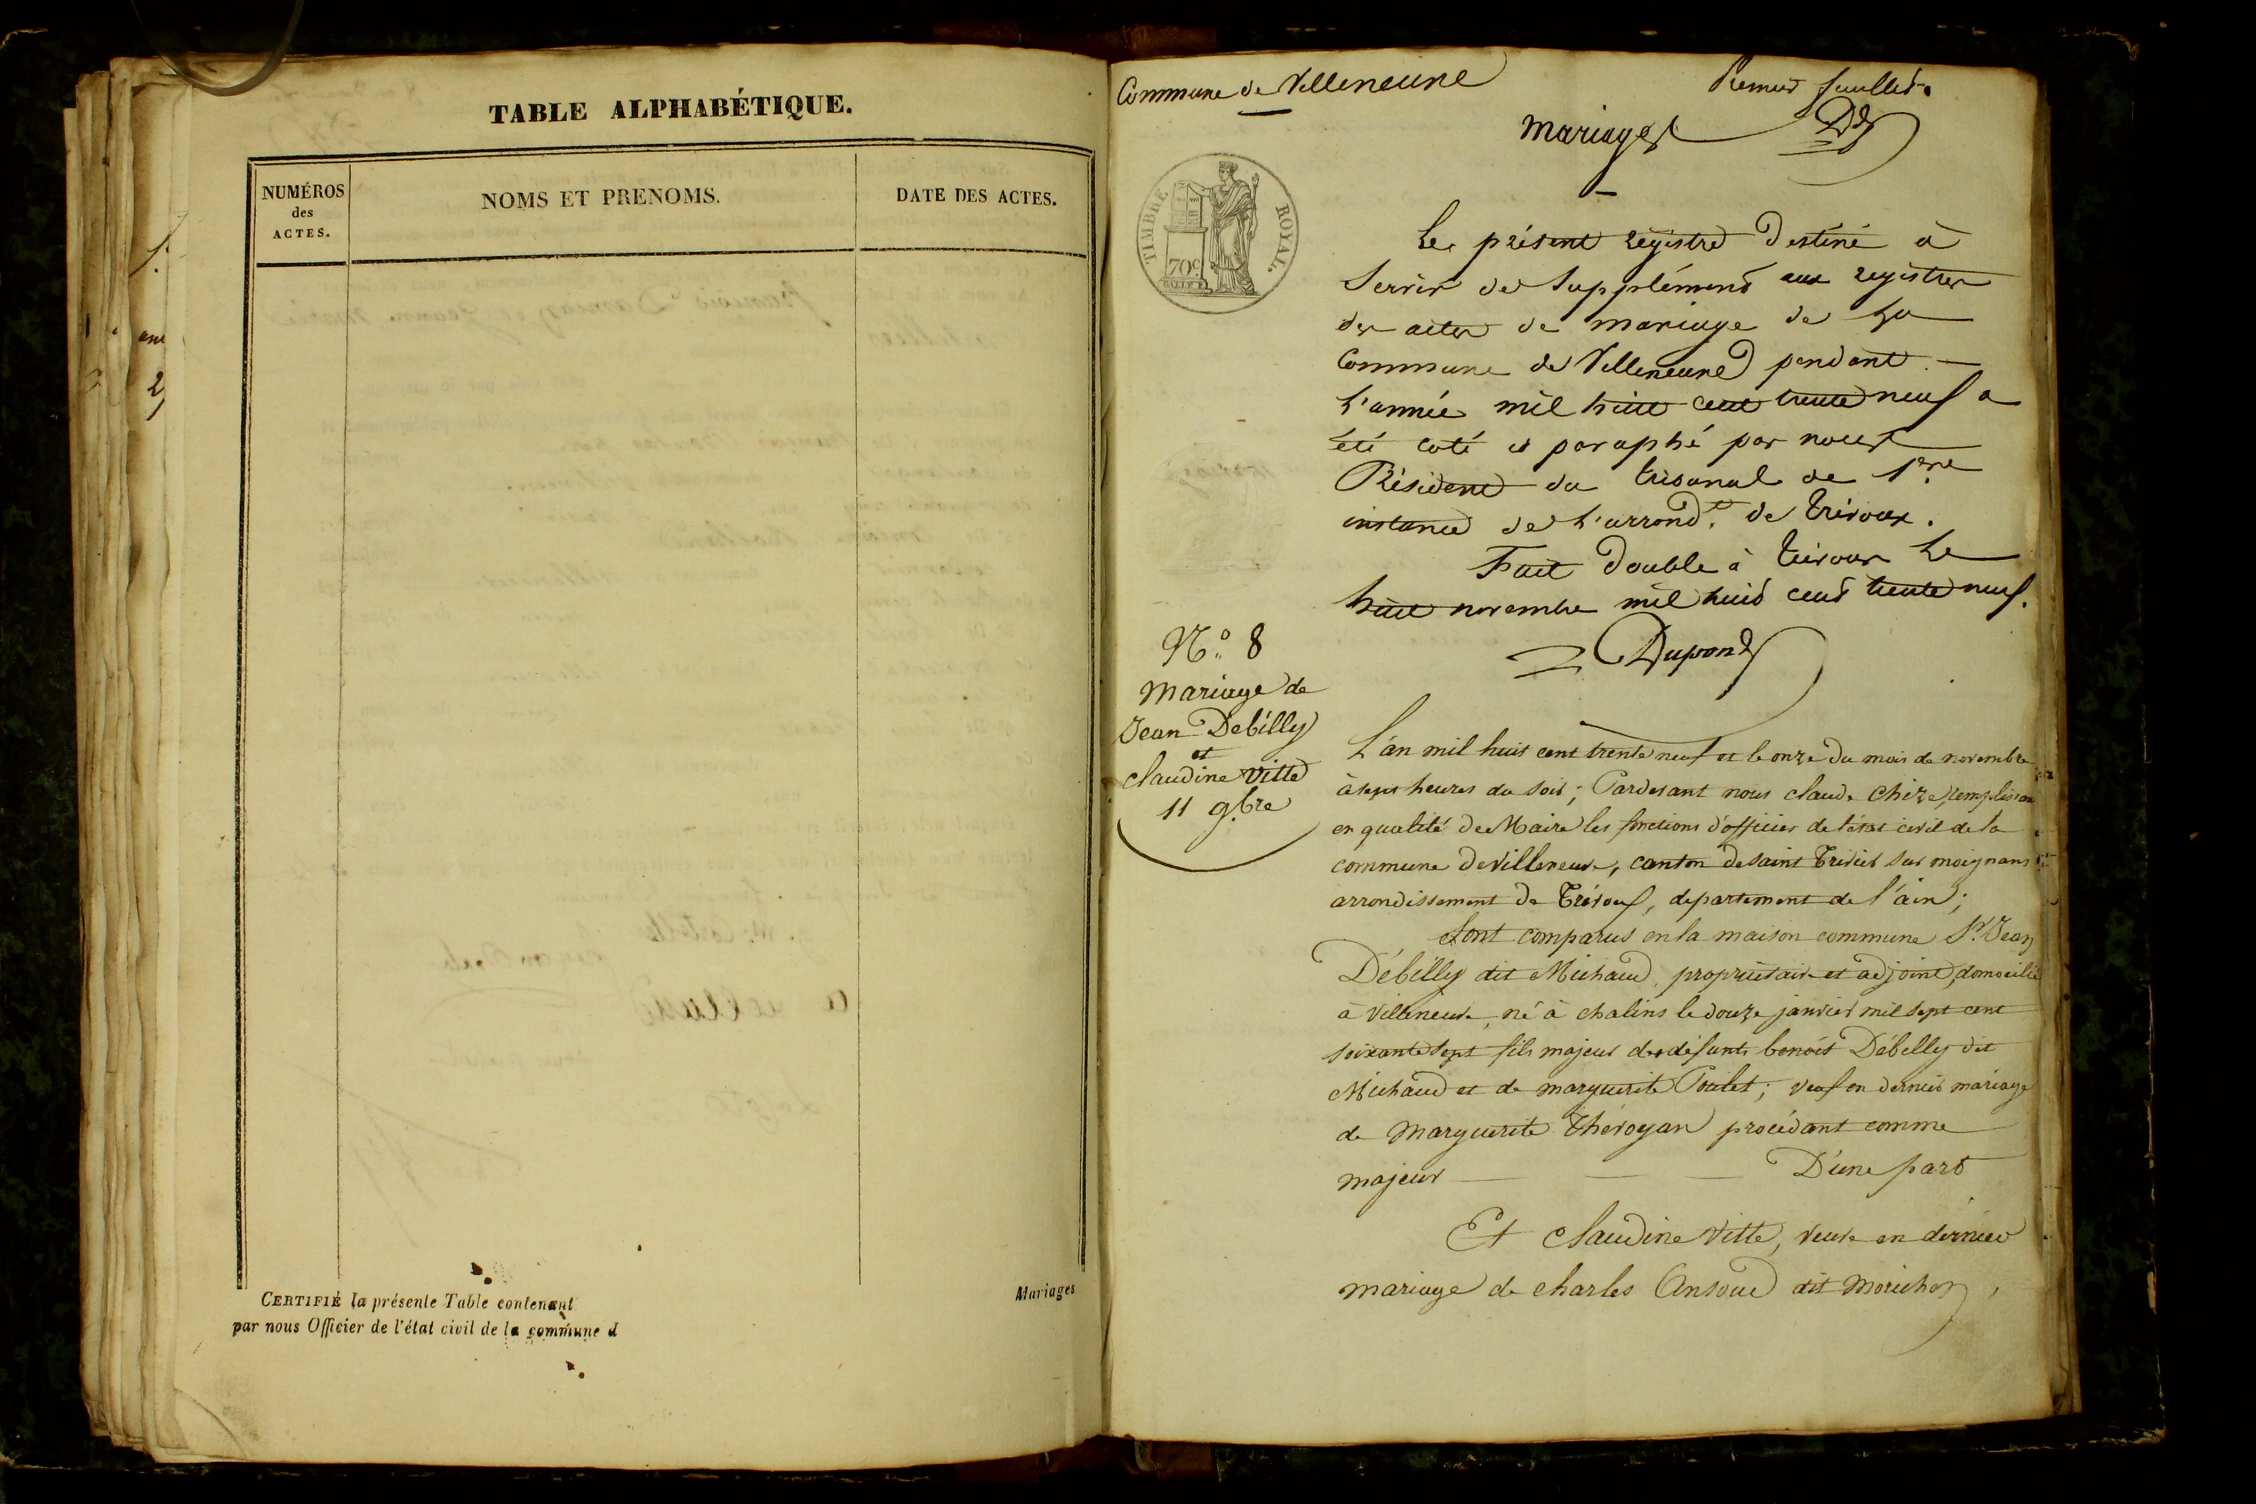 TABLE ALPHABÉTIQUE.
NUMÉROS
des
ACTES.
NOMS ET PRENOMS.
DATE DES ACTES.
CERTIFIÉ la présente Table contenant
par nous Officier de l'état civil de la commune d
Mariages
Commune de Villeneuve
Premier feuillet.
Mariages
TIMBRE ROYAL.
70c
Le présent registre destiné à
Servir de Supplément aux registres
des actes de mariage de la
Commune de Villeneuve pendant
l'année mil huit cent trente neuf a
été coté et paraphé par nous
Président du tribunal de 1ere
instance de l'arrondt. de Trévoux.
Fait double à Trévoux le
huit novembre mil huit cent trente neuf.
Dupond
No. 8
Mariage de
Jean Debilly
et
Claudine Vitte
11 9.bre
L'an mil huit cent trente neuf et le onze du mois de novembre
à sept heures du soir; Pardevant nous Claude Chize, remplissant
en qualité de Maire les fonctions d'officier de l'état civil de la
commune de Villeneuve, canton de Saint Trivier sur moignans
arrondissement de Trévoux, departement de l'ain;
Sont comparus en la maison commune Sr. Jean
Débilly dit Michaud, propriétaire et adjoint, domicilié
à Villeneuve, né à chaleins le douze janvier mil sept cent
soixante sept fils majeur des défunts benoit Débilly dit
Michaud et de marguerite Poulet; veuf en dernier mariage
de Marguerite procédant comme
majeur D'une part
Et Claudine Vitte, veuve en dernier
mariage de Charles dit Morichon,